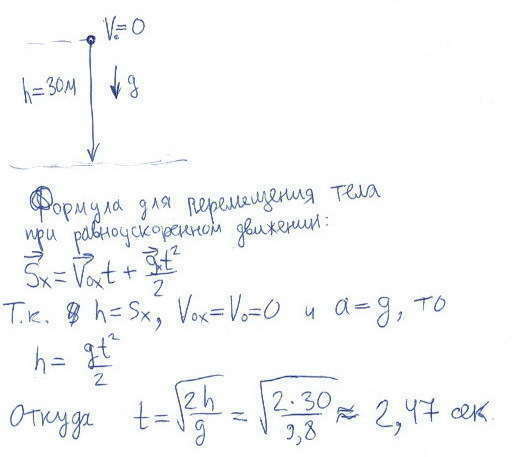 V₀=0
h=30м
g
Формула для перемещения тела
при равноускоренном движении:
S⃗ₓ=V⃗₀ₓt + g⃗ₓt²/2
Т.к. h=Sₓ, V₀ₓ=V₀=0 и a=g, то
h= gt²/2
Откуда t=√(2h/g) = √(2·30/9,8) ≈ 2,47 сек.